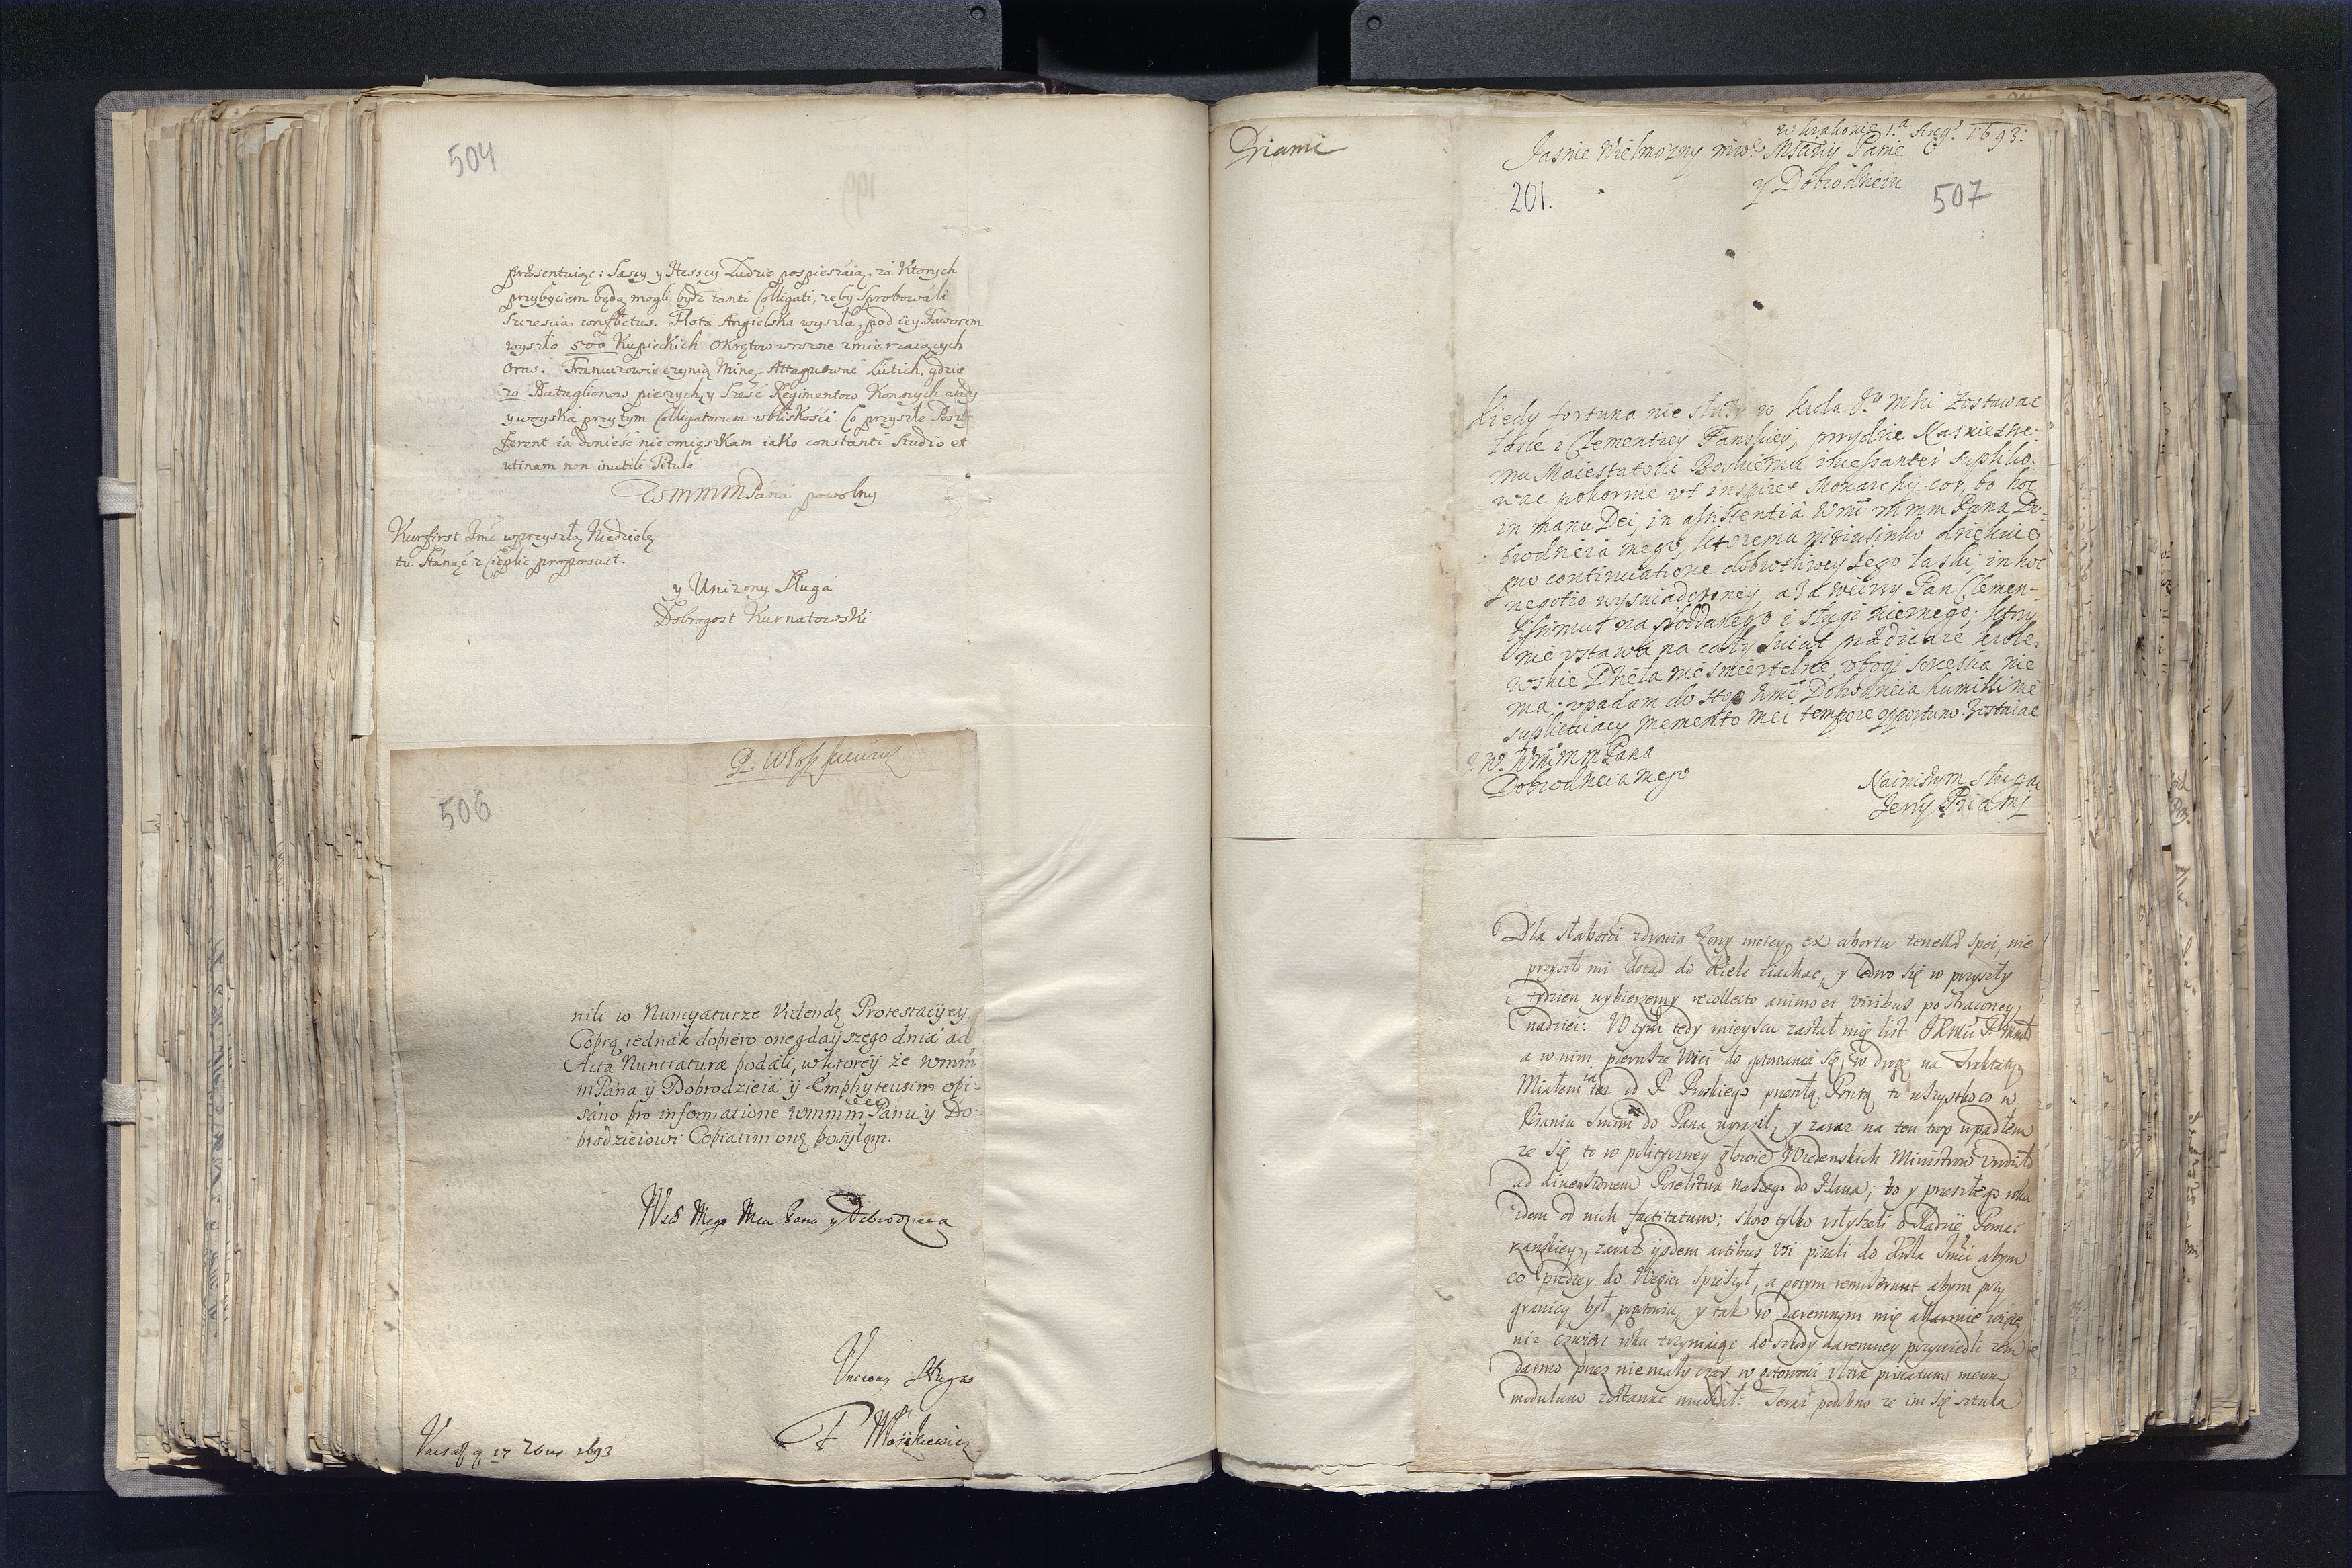 504
præsentuiąc: Sascy y Hesscy Ludzie pospieszáią, zá ktorych
przybyciem będą mogli bydz tanti Colligati, zeby sprobowáli
szczescia conflictus. Flota Angielska wyszłá, pod iey Faworem
wyszło 500 Kupieckich Okrętow wrozne zmierzaiących
Oras. Francuzowie czynią Minę Attaquować Lutich, gdzie
20 Bataglionow pieszych, y sześć Regimentow Konnych
y woyská przytym Colligatorum wbliskości. Co przyszłe Poszty
ferent ia donieść nieomięszkam iako constanti studio et
utinam non inutili Titulo
WMMMPáná powolny
Kurfirst Imć wprzyszłą Niedzielę
tu stánąć z Cieplic proposuit.
y Unizony Sługá
Dobrogost Kurnatowski
P. Włoszkiewicz
506
nili w Nuncyaturze Videndę Protestacyey.
Copią iednák dopiero onegdáyszego dniá ad
Acta Nunciaturæ podáli, w ktorey że wmm
mPána ÿ Dobrodzieiá ÿ Emphyteusim opi:
sáno pro informatione wmmm Pánu ÿ Do:
brodzieiowi Copiatim onę posyłąm.
Mego Mcu Pana y Dobrodzieia
Unizony Sługa
F Włoszkiewicz
1693
Priami
w krakowie 1.a Aug. 1693:
Jasnie Wielmozny Panie
y Dobrodzieiu
201.
507
kiedy fortuna nie służy w krola Je Mści zostawac
łasce i Clementiey Panskiey, przydzie Naswietsze:
mu Maiestatowi Boskiemu incessanter supliko:
wac pokornie vt inspiret Monarchy cor, bo hoc
in manu Dei, in assistentia Wmć mmm Pana Do:
brodzieia mego, ktoremu nisiusinko dziękuie
pro continuatione dobrotliwey Jego łaski, in hoc
negotio wyswiadczoney, a Pan Clemen-
tissimus na poddanego i sługę wiernego; ktory
nie vstawa na cały swiat prædicare krole:
wskie Dzieła niesmiertelne, vbogi sczescia nie
ma. vpadam do stop Wmć Dobrodzieia humillime
suplicuiący memento mei tempore opportuno. Zostaiac
J. W. Wmć mm Pana
Dobrodzieia mego
Nainiszym sługą
Jerzy Priami
Dla słabości zdrowia Zony moiey, ex abortu tenellæ spei, nie
przyszło mi dotąd do Kielc ziachac, y ledwo się w przyszły
tydzien wybierzemy recollecto animo et viribus po straconey
nadziei. W tym tedy mieyscu zastał mię list
a w nim pierwsze Wici do gotowania się w drogę na Traktaty
Miałem ia tez od P. Proskiego przeszłą Pocztą to wszystko co w
Pisaniu swoim do Pana wyraził, y zaraz na ten trop wpadłem
ze się to w politiczney głowie Wiedenskich Ministrow vrodziło
ad diversionem Poselstwa naszego do Hana; bo y przeszłego roku
idem od nich factitatum: skoro tylko vsłyszeli o Radzie
zaraz iisdem artibus pisali do Krola Imci abym
co prędzey do Węgier spieszył, a potym remiserunt abym przy
granicy był pogotowiu, y tak w daremnym mię allarmie więcey
niz cwierc roku trzymaiąc do szkody daremney przywiedli zem
darmo przez niemały czas w gotowosci vltra privatum meum
modulum zostawac musiał. Teraz podobno ze im się sztuka